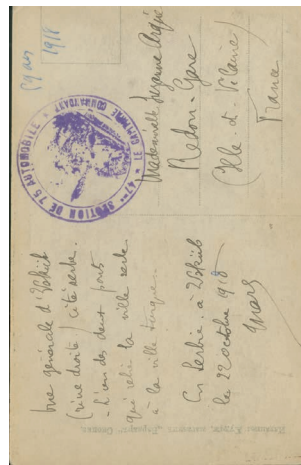 Cyais
1918
47ème SECTION DE 75 AUTOMOBILE
LE CAPITAINE COMMANDANT
Mademoiselle Suzanne
Redon-Gare
(Ille et Vilaine)
France
Vue générale d'Uskub
(rive droite) cité serbe.
L'un des deux ponts
qui relie la ville serbe
à la ville turque.
En Serbie. à Uskub
le 22 octobre 1918